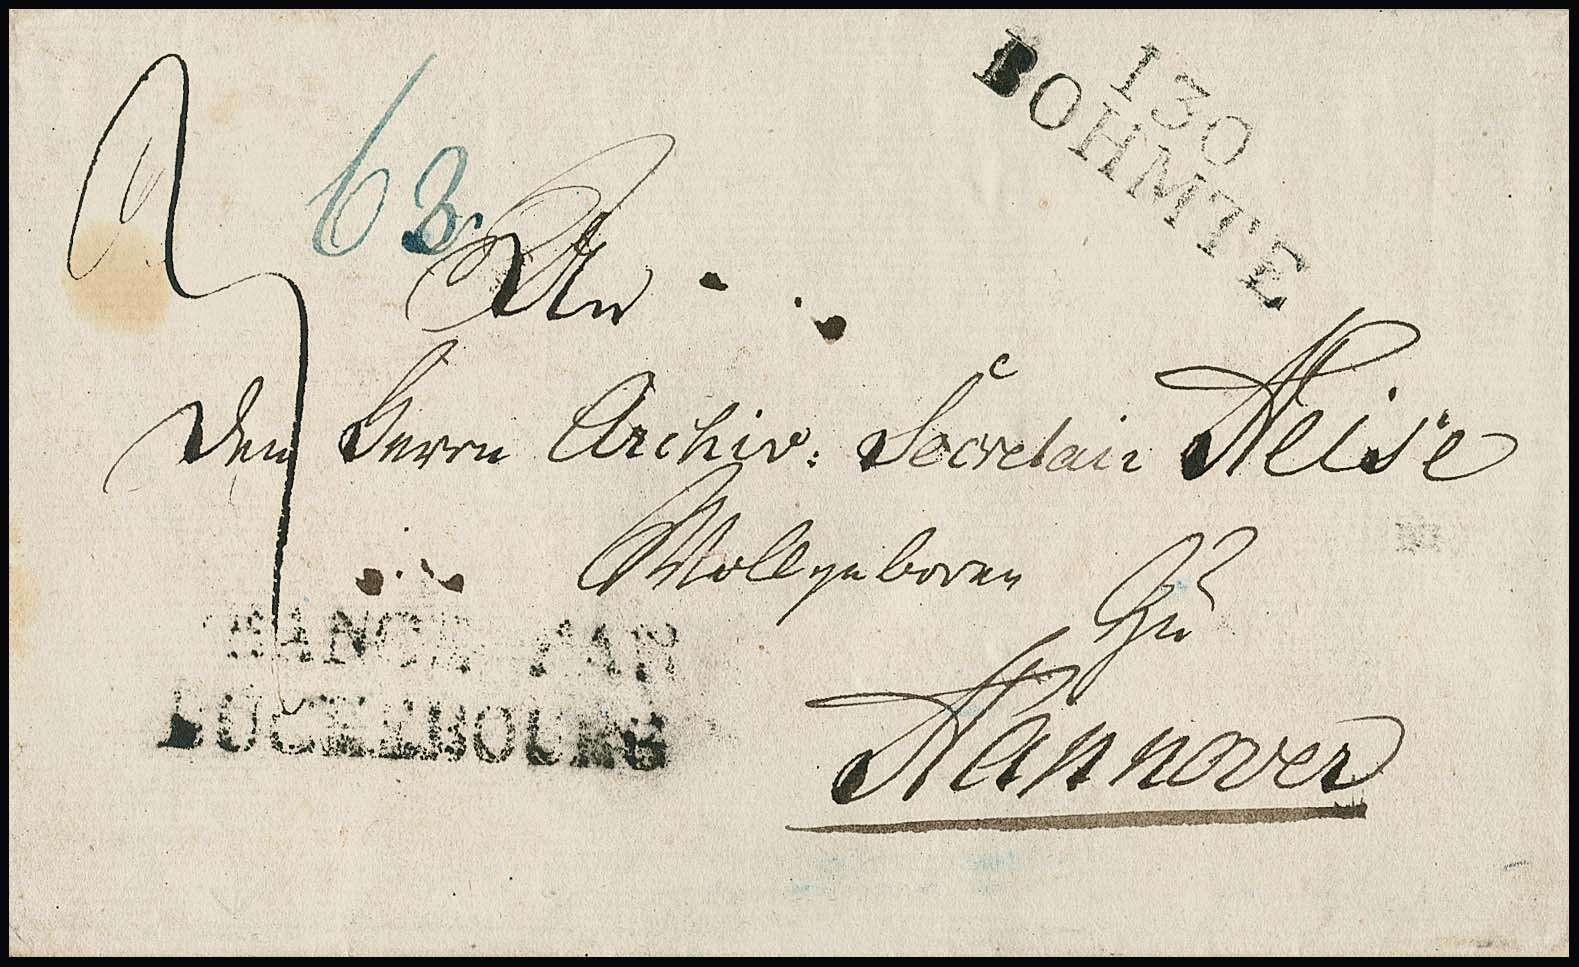 130
BOHMTE
63
An
Den Herrn Archiv: Secretair Heise
Wollgeboren
Zu
Hannover
RANCE PAR
BUCKEBOURG